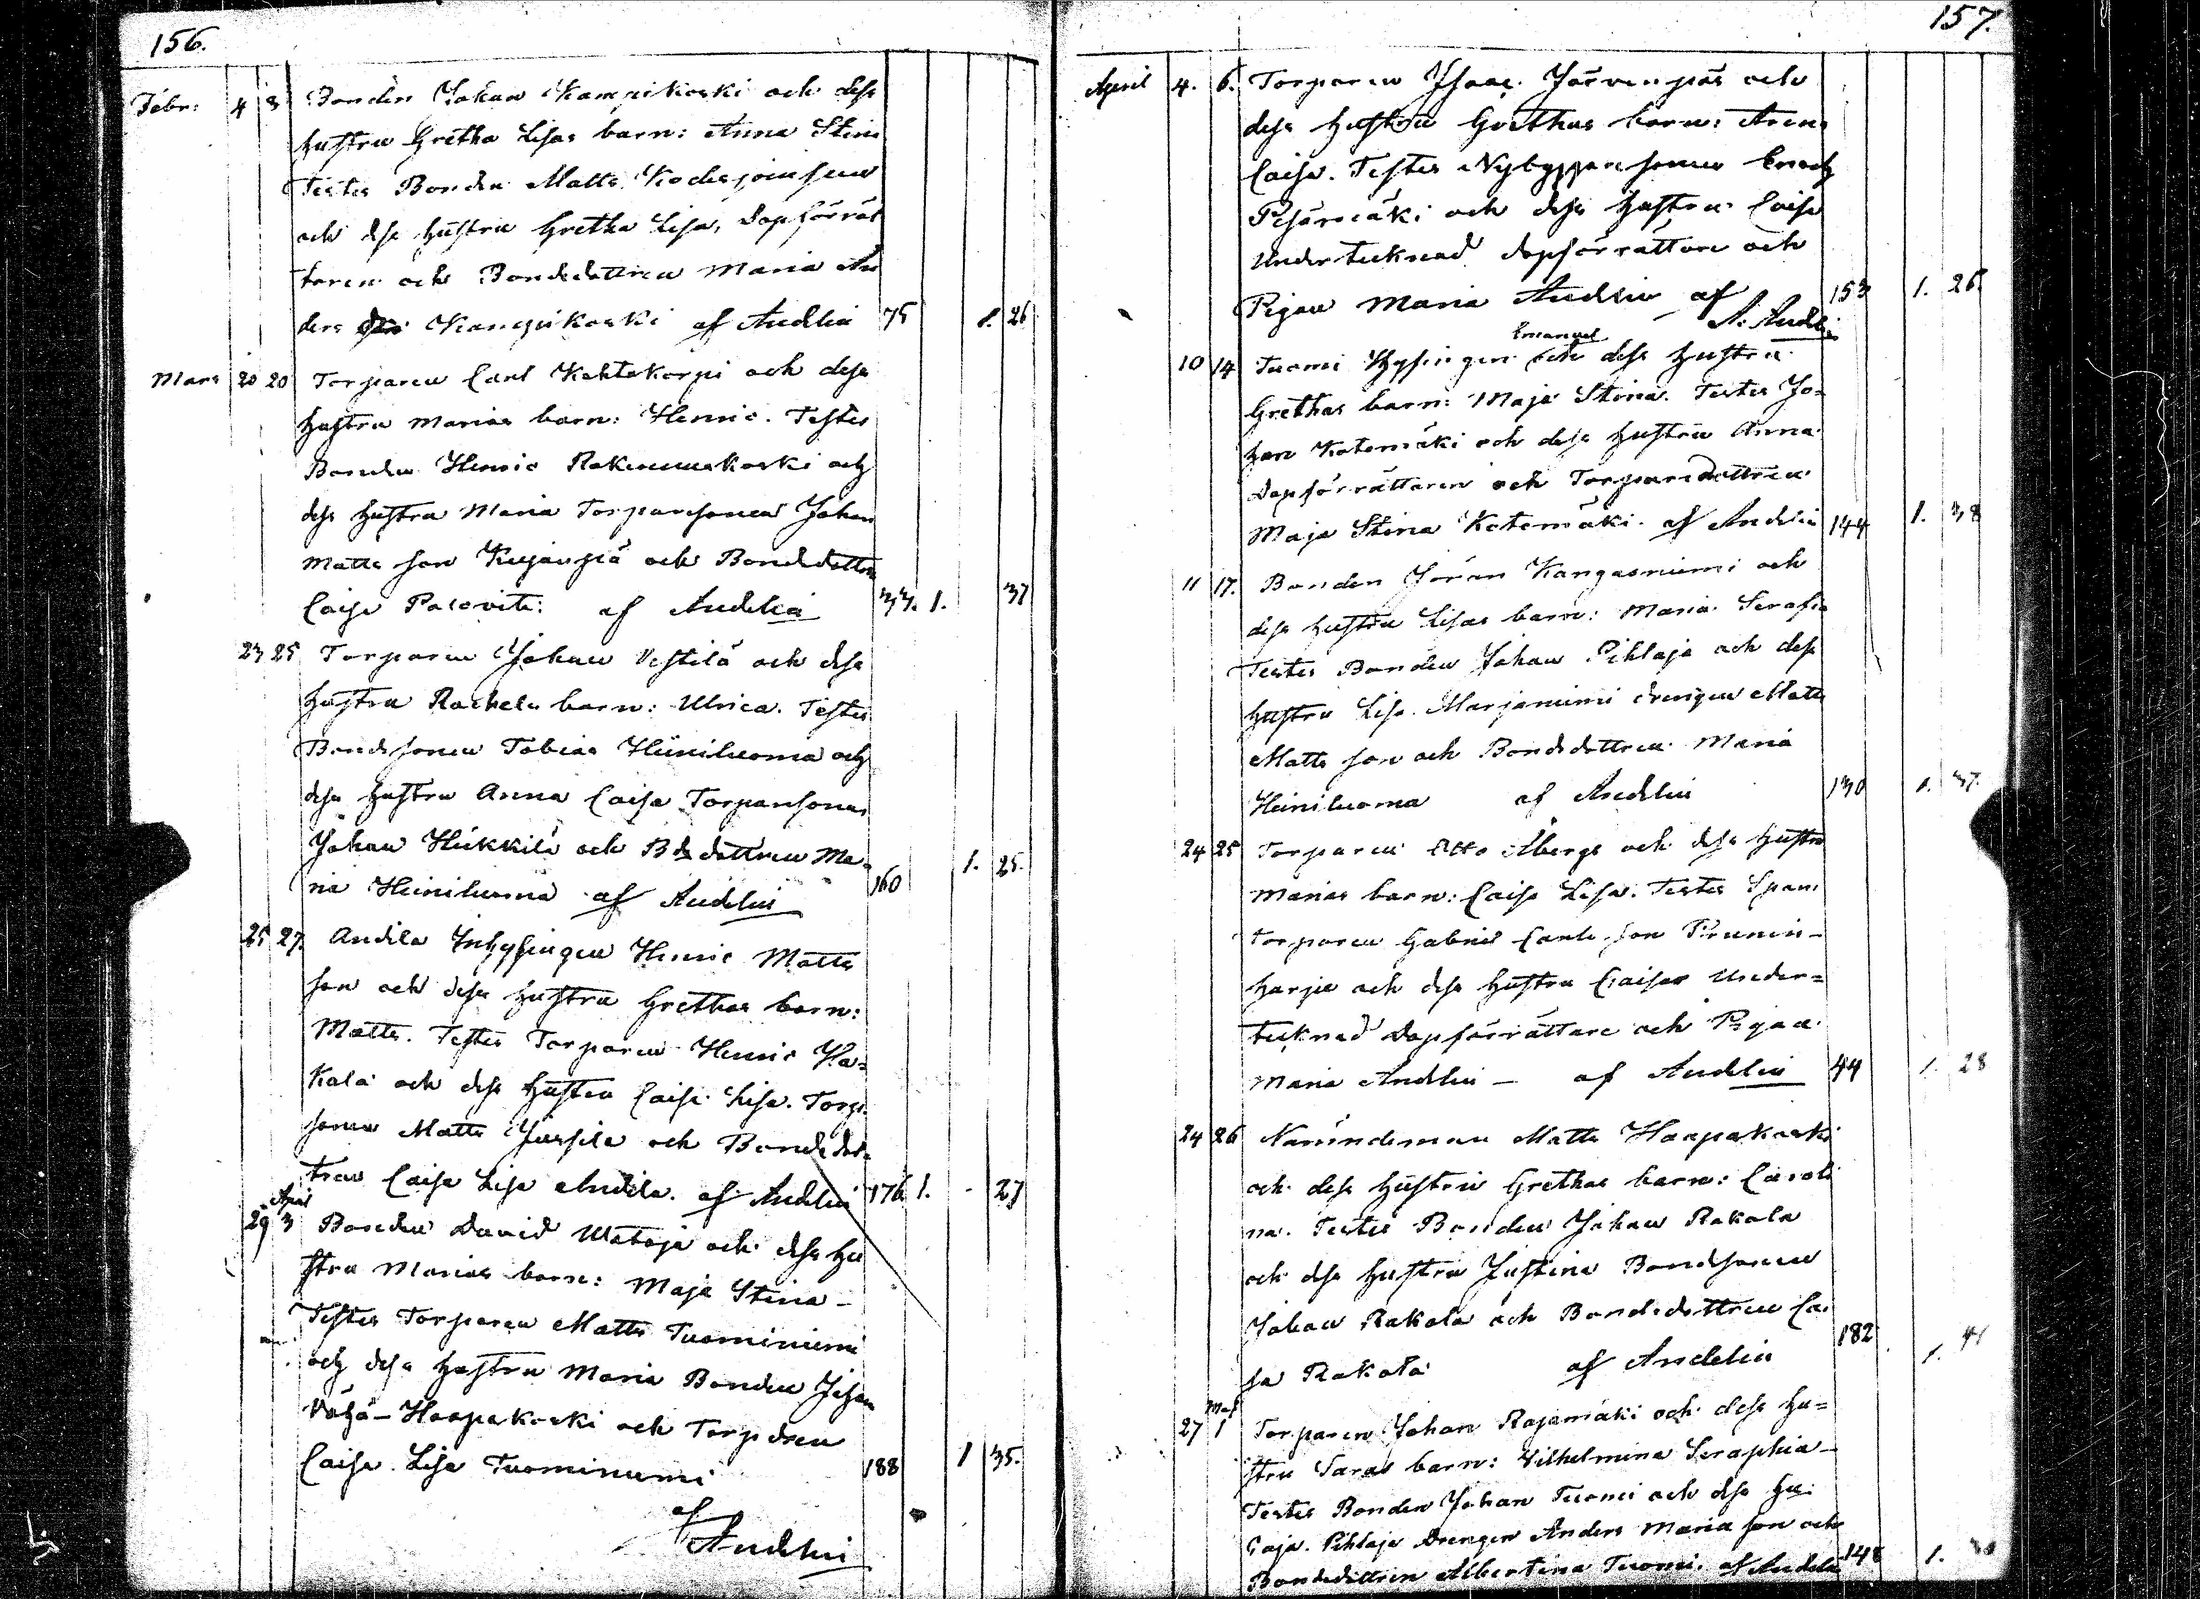 156.
Febr: 4 8 Bonden Johan Kampikoski och dess
hustru Gretha Lisas barn: Anna Stina
Testes Bonden Matts
och dess hustru Gretha Lisa, Dopförrät
taren och Bondedottren Maria An
ders Kampikoski af Andelin 75 1. 26
Mars 20 20 Torparen Carl Kohtakorpi och dess
hustru Marias barn: Henric. Testes
Bonden Henric och
dess hustru Maria Torparesonen Johan
Matts son Kujanpä och Bondedottren
Caisa af Andelin 33. 1. 37
23 25 Torparen Johan Vestilä och dess
hustru Rachels barn: Ulrica. Testes
Bondesonen Tobias Heiniluoma och
dess hustru Anna Caisa Torparesonen
Johan Heikkilä och Bdedottren Ma-
ria Heiniluoma af Andelin 160 1. 25.
25 27. Andila Inhysingen Henric Matts
son och dess hustru Grethas barn:
Matts. Testes Torparen Henric Ha-
kala och dess hustru Caisa Lisa. Torp.
sonen Matts Jussila och Bondedot-
tren Caisa Lisa Andila. af Andelin 176 1. 27
April
29 3 Bonden David Wataja och dess hu
stru Marias barn: Maja Stina-
Testes Torparen Matts Tuominiemi
och dess hustru Maria Bonden Johan
Vähä-Haapakoski och Torpdren
Caisa Lisa Tuominiemi 188 1 35.
af
Andelin
157.
April 4. 6. Torparen Isaac Järvenpää och
dess hustru Grethas barn: Anna
Caisa. Testes Nybyggaresonen Enoch
Pesämäki och dess hustru Caisa
Undertecknad dopförrättare och
Pigan Maria Andelin af 153 1. 26.
A: Andelin
Emanuel
10 14 Tuomi Hysingen och dess hustru
Grethas barn: Maja Stina. Testes Jo-
han Katomäki och dess hustru Anna
Dopförrättaren och Torparedottren
Maja Stina Katomäki. af Andelin 144 1. 38
11 17. Bonden Jöran Kangasniemi och
dess hustru Lisas barn: Maria Serafia
Testes Bonden Johan Pihlaja och dess
hustru Lisa. Marjaniemi drengen Matts
Matts son och Bondedottren Maria
Heiniluoma af Andelin 130 1. 37.
24 25 Torparen Otto Åbergs och dess hustru
Marias barn: Caisa Lisa. Testes Span
torparen Gabriel Carls son
harju och dess hustru Caisa Under-
tecknad Dopförrättare och Pigan
Maria Andelin - af Andelin 44 1. 28
24 26 Nämndeman Matts Haapakoski
och dess hustru Grethas barn: Caroli
na. Testes Bonden Johan Rakola
och dess hustru Justina Bondesonen
Johan Rakola och Bondedottren Ca-
sa Rakola af Andelin 182 1. 41
Maj
27 1 Torparen Johan Rajamäki och dess hu-
stru Saras barn: Vilhelmina Seraphia-
Testes Bonden Johan Tuomi och dess hu.
Caja. Pihlaja Drengen Anders Maria son och
Bondedottren Albertina Tuomi. af Andelin 148 1.